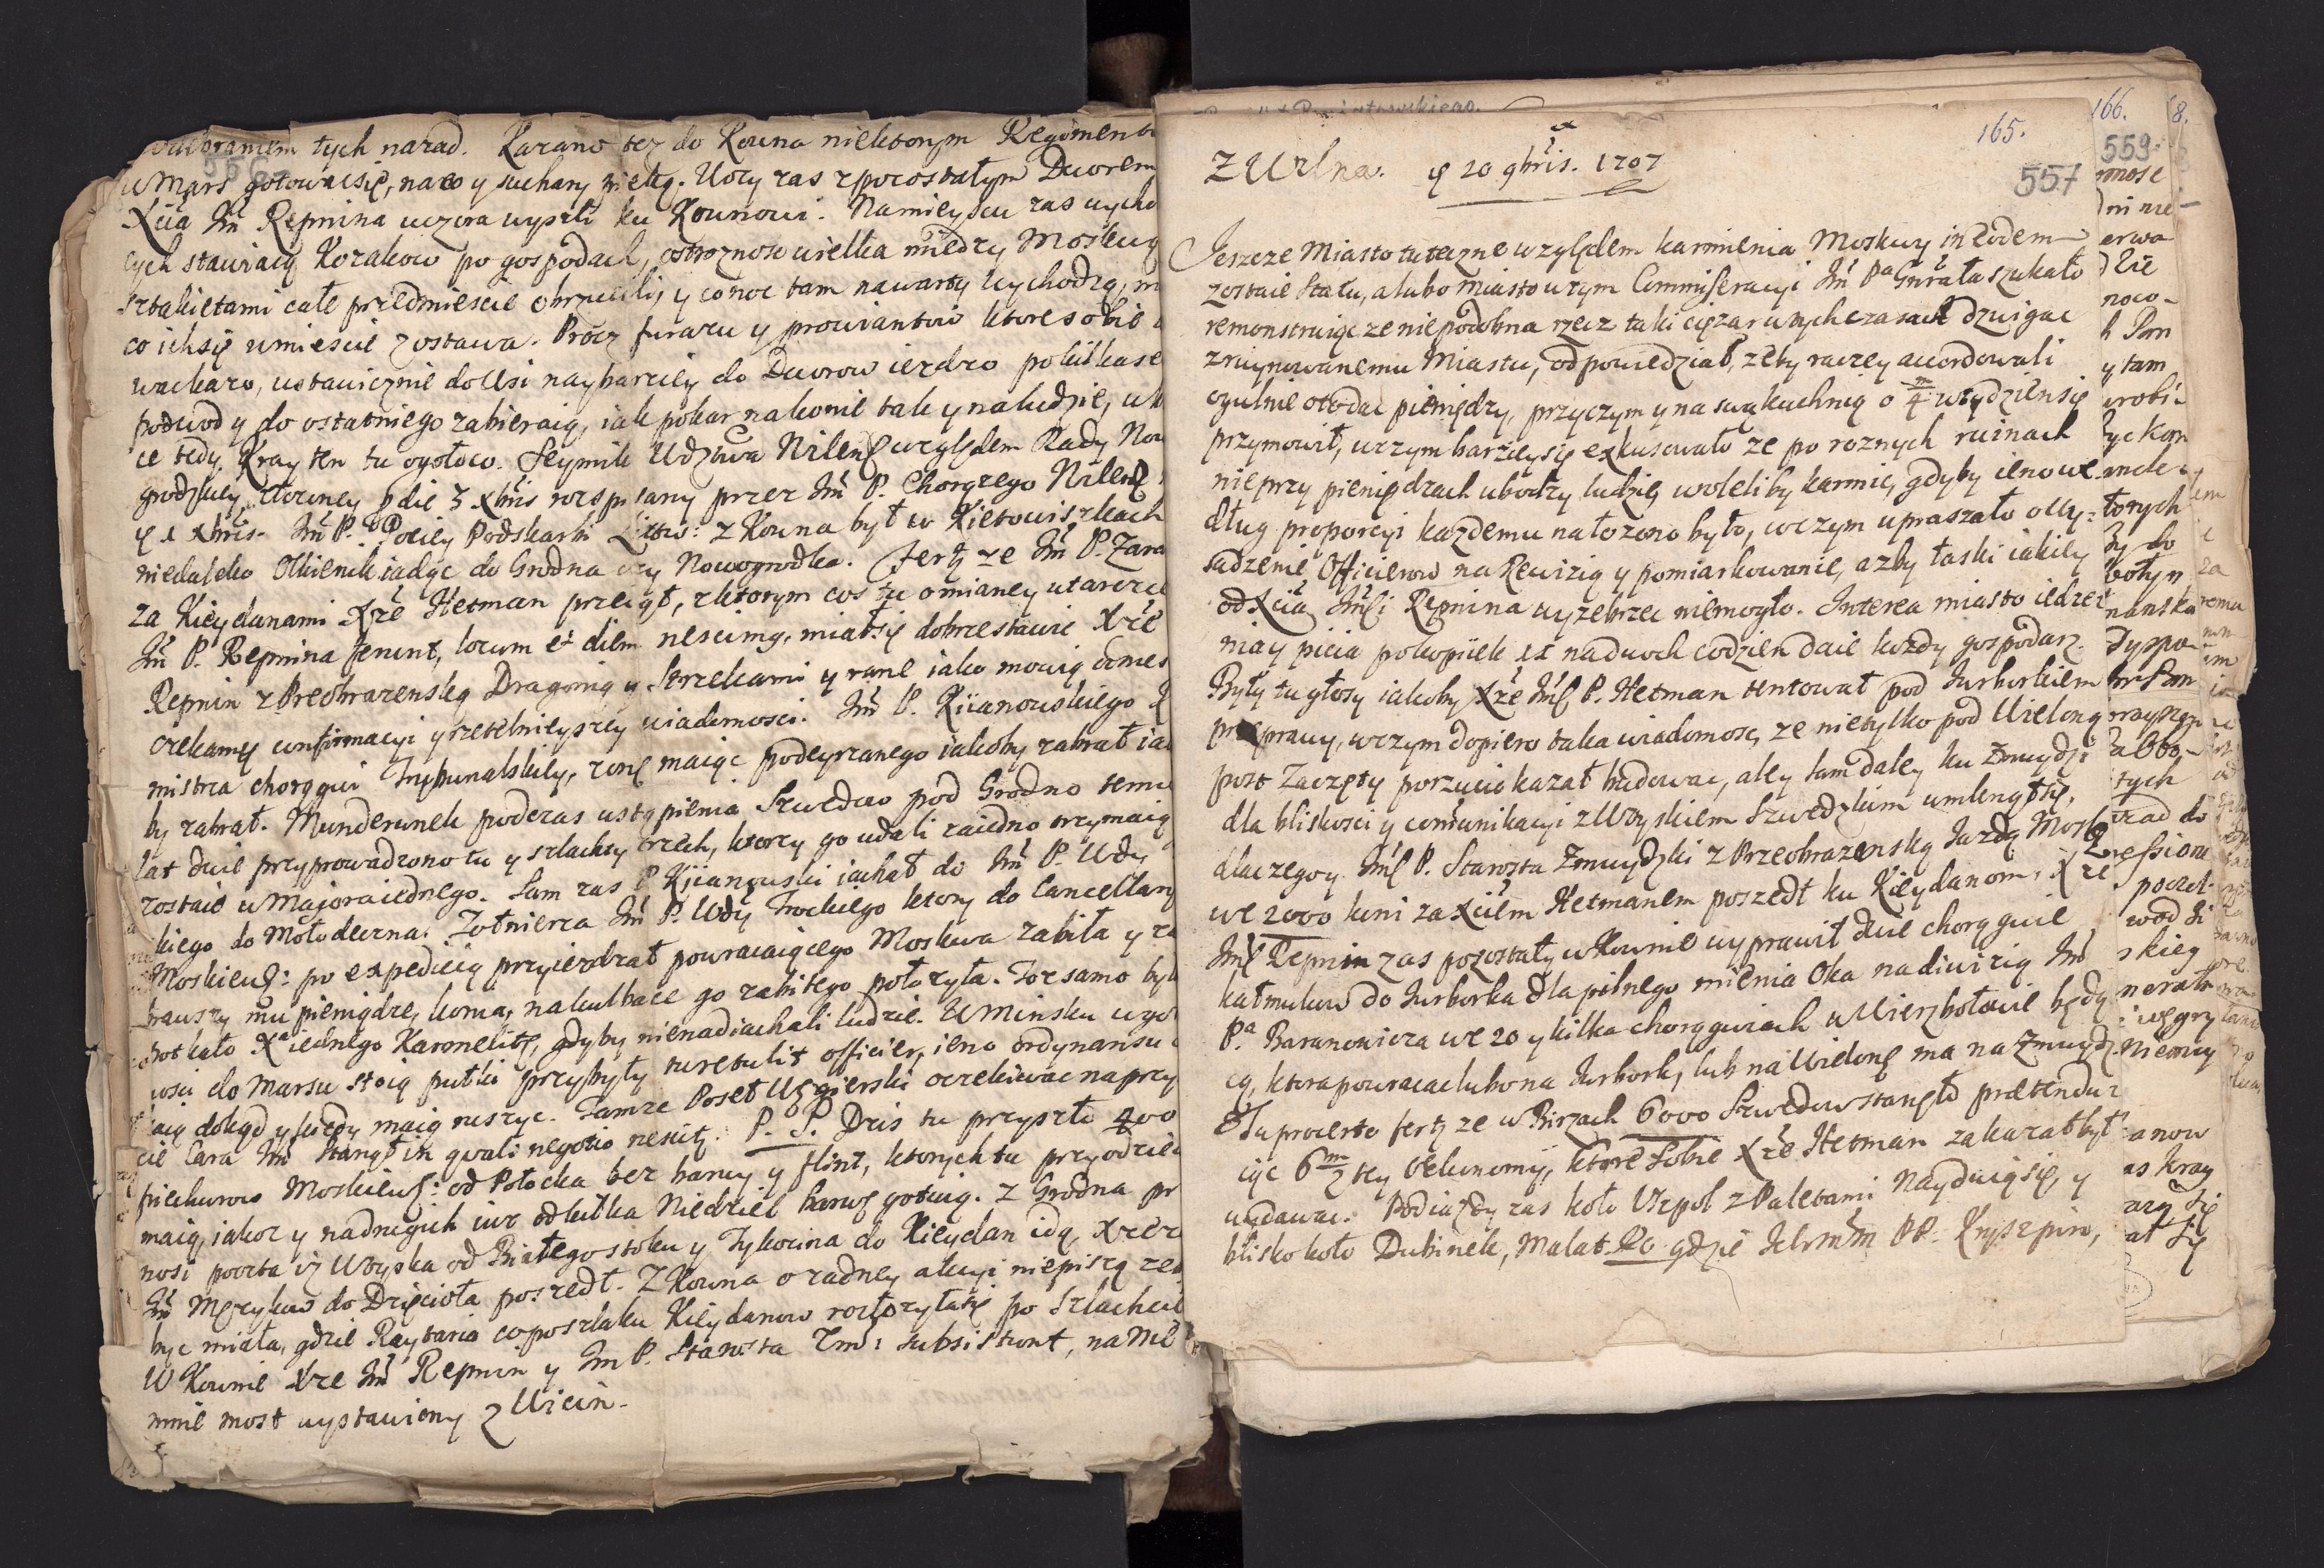 tych narad. Kazano tez do Kowna niektorym Regiment
w Mars gotowacsię, na co y suchary pieką. Wozy zas z pozostałym Dworem
Xcia Im Repnina wczora wyszli ku Kownowi. Na mieyscu zas wycho
cych stawiaią Kozakow po gospodach, ostroznosc wielka miedzy Moskwą
sztakietami całe przedmiescie obrzucili, y co noc tam na warty wychodzą,
co ich się w miescie zostawa. Procz furazu y prowiantow ktore sobie
ustawicznie do Wsi naybarziey do Dworow iezdzo po kilkase
podwody do ostatniego zabieraią, iak pokaz na konie tak y na ludzie,
ce tedy Kray ten tu ogołoco. Seymik Wdztwa Wilens względem Rady Now
grodzkiey, złozoney p die 3 Xbris rozpisany przez Im P. Chorązego Wilens
p 1 Xbris. Im P. Pociey Podskarbi Litew: z Kowna był w Kietowiszkach
niedaleko Olkienik iadąc do Grodna czy Nowogrodka. Fert ze Im P. Zara
za Kieydanami Xze Hetman przeiął, z ktorym cos tu o mianey utarczce
Im P. Repnina ferunt, locum et diem nescimus, miałsię dobrze stawic Xze
Repnin z Preobrazenską Dragonią y Strzelcami y rane iako mowią
czekamy confirmacyi y rzetelnieyszey wiadomosci. Im P. Kiianowskiego
mistrza chorągwi Trybunalskiey, zonę maiąc podeyrzanego iakoby zabrał
by zabrał. Munderunek podczas ustąpienia Szwedow pod Grodno temu
lat dwie przyprowadzono tu y szlachty trzech, ktorzy go udali zaiedno trzymaią
zostaie u Majora iednego. Sam zas P. Kiianowski iachał do Im P. Wdy
kiego do Mołodeczna. Zołnierza Im P. Wdy Trockiego ktory do Cancellary
Moskiews: po expedicią przyiezdzał powracaiącego Moskwa zabiła y
brawszy mu pieniądze, konia, na kulbace go zabitego połozyła. Toz samo było
potkało Xa iednego Karmelitę, gdyby nienadiachali ludzie. W Minsku w goto
wosci do Marsu stoią pułki przybyły tu retulit officier, ieno ordynansu
maią dokąd y kiedy maią ruszyc. Tamze Poseł Węgierski oczekiwac na przy
cie Cara Im stanął in quali negotio nescitur. P. S. Dzis tu przyszło 200
piechurow Moskiews: od Połocka bez barwy y flint, ktorych tu przyodziec
maią, iakoz y na drugich iuz od kilka Niedziel barwę gotuią. Z Grodna pr
nosi poczta iz Woyska od Białegostoku y Tykocina do Kieydan idą, Xze
Im Męzykow do Dzięcioła poszedł. Z Kowna o zadney akcyi niepiszą zeby
byc miała, gdzie Raytaria co poszłaku Kieydanow rozłozyłasię po Szlachcie
W Kownie Xze Im Repnin y Im P. Starosta Zmu: subsistunt, na Nie
mnie most wystawiony z Wicin.
165.
557
Z Wilna. p 20 9bris. 1707
Jeszcze Miasto tuteczne względem karmienia Moskwy in eodem
zostaie Statu, a lubo miasto w tym Commiseracyi Im Pa Gnrała szukało
remonstruiąc ze niepodobna rzecz taki cięzar w tych czasach dzwigac
zruynowanemu Miastu, odpowiedział, zeby raczey accordowali
ogulnie oto dac pieniędzy, przyczym y na swą kuchnią o 4m w tydziensię
przymowił, w czym barzieysię exkusowało ze po roznych ruinach
nie przy pieniędzach ubodzy ludzie, woleliby karmic, gdyby ieno we
dług proporcyi kazdemu nałozono było, w czym upraszało o Wy=
sadzenie Officierow na Rewizią y pomiarkowanie, azby łaski iakiey
od Xcia Imsci Repnina wyzebrzec niemogło. Interea miasto iedze
nia y picia po kopiiek 11 na dwoch codzien daie kozdy gospodarz.
Były tu głosy iakoby Xze Ims P. Hetman tentował pod Jurborkiem
przeprawy, w czym dopiero taka wiadomosc, ze nietylko pod Wieloną
post zaczęty porzucic kazał budowac, aley tam daley ku Zmuydzi
dla bliskosci y communikacyi z Woyskiem Szwedzkim umknąłsię,
dlaczegoy Ims P. Starosta Zmuydzki z Przeobrazenską Jazdą Mosk
we 2000 koni za Xciem Hetmanem poszedł ku Kieydanom, Xze
Ims Repnin zas pozostały w Kownie wyprawił dwie chorągwie
kałmukow do Jurborka dla pilnego mienia Oka na diwizią Im
Pa Baranowicza we 20 y kilka chorągwiach w Wierzbołowie będą
cą, ktora powracac lubo na Jurbork, lub na Wielonę ma na Zmuydz
Tu pro certo fert ze w Birzach 6000 Szwedow stanęło prætendu
iąc 6m z tey Oekonomij, ktore sobie Xze Hetman zakazał był
wydawac. Podiazdy zas koło Uszpol z Paletami Nayduią się, y
blisko koło Dubinek, Malat. Ro gdzie Ichmm PP. Kryszpiw,
166.
559.
8.